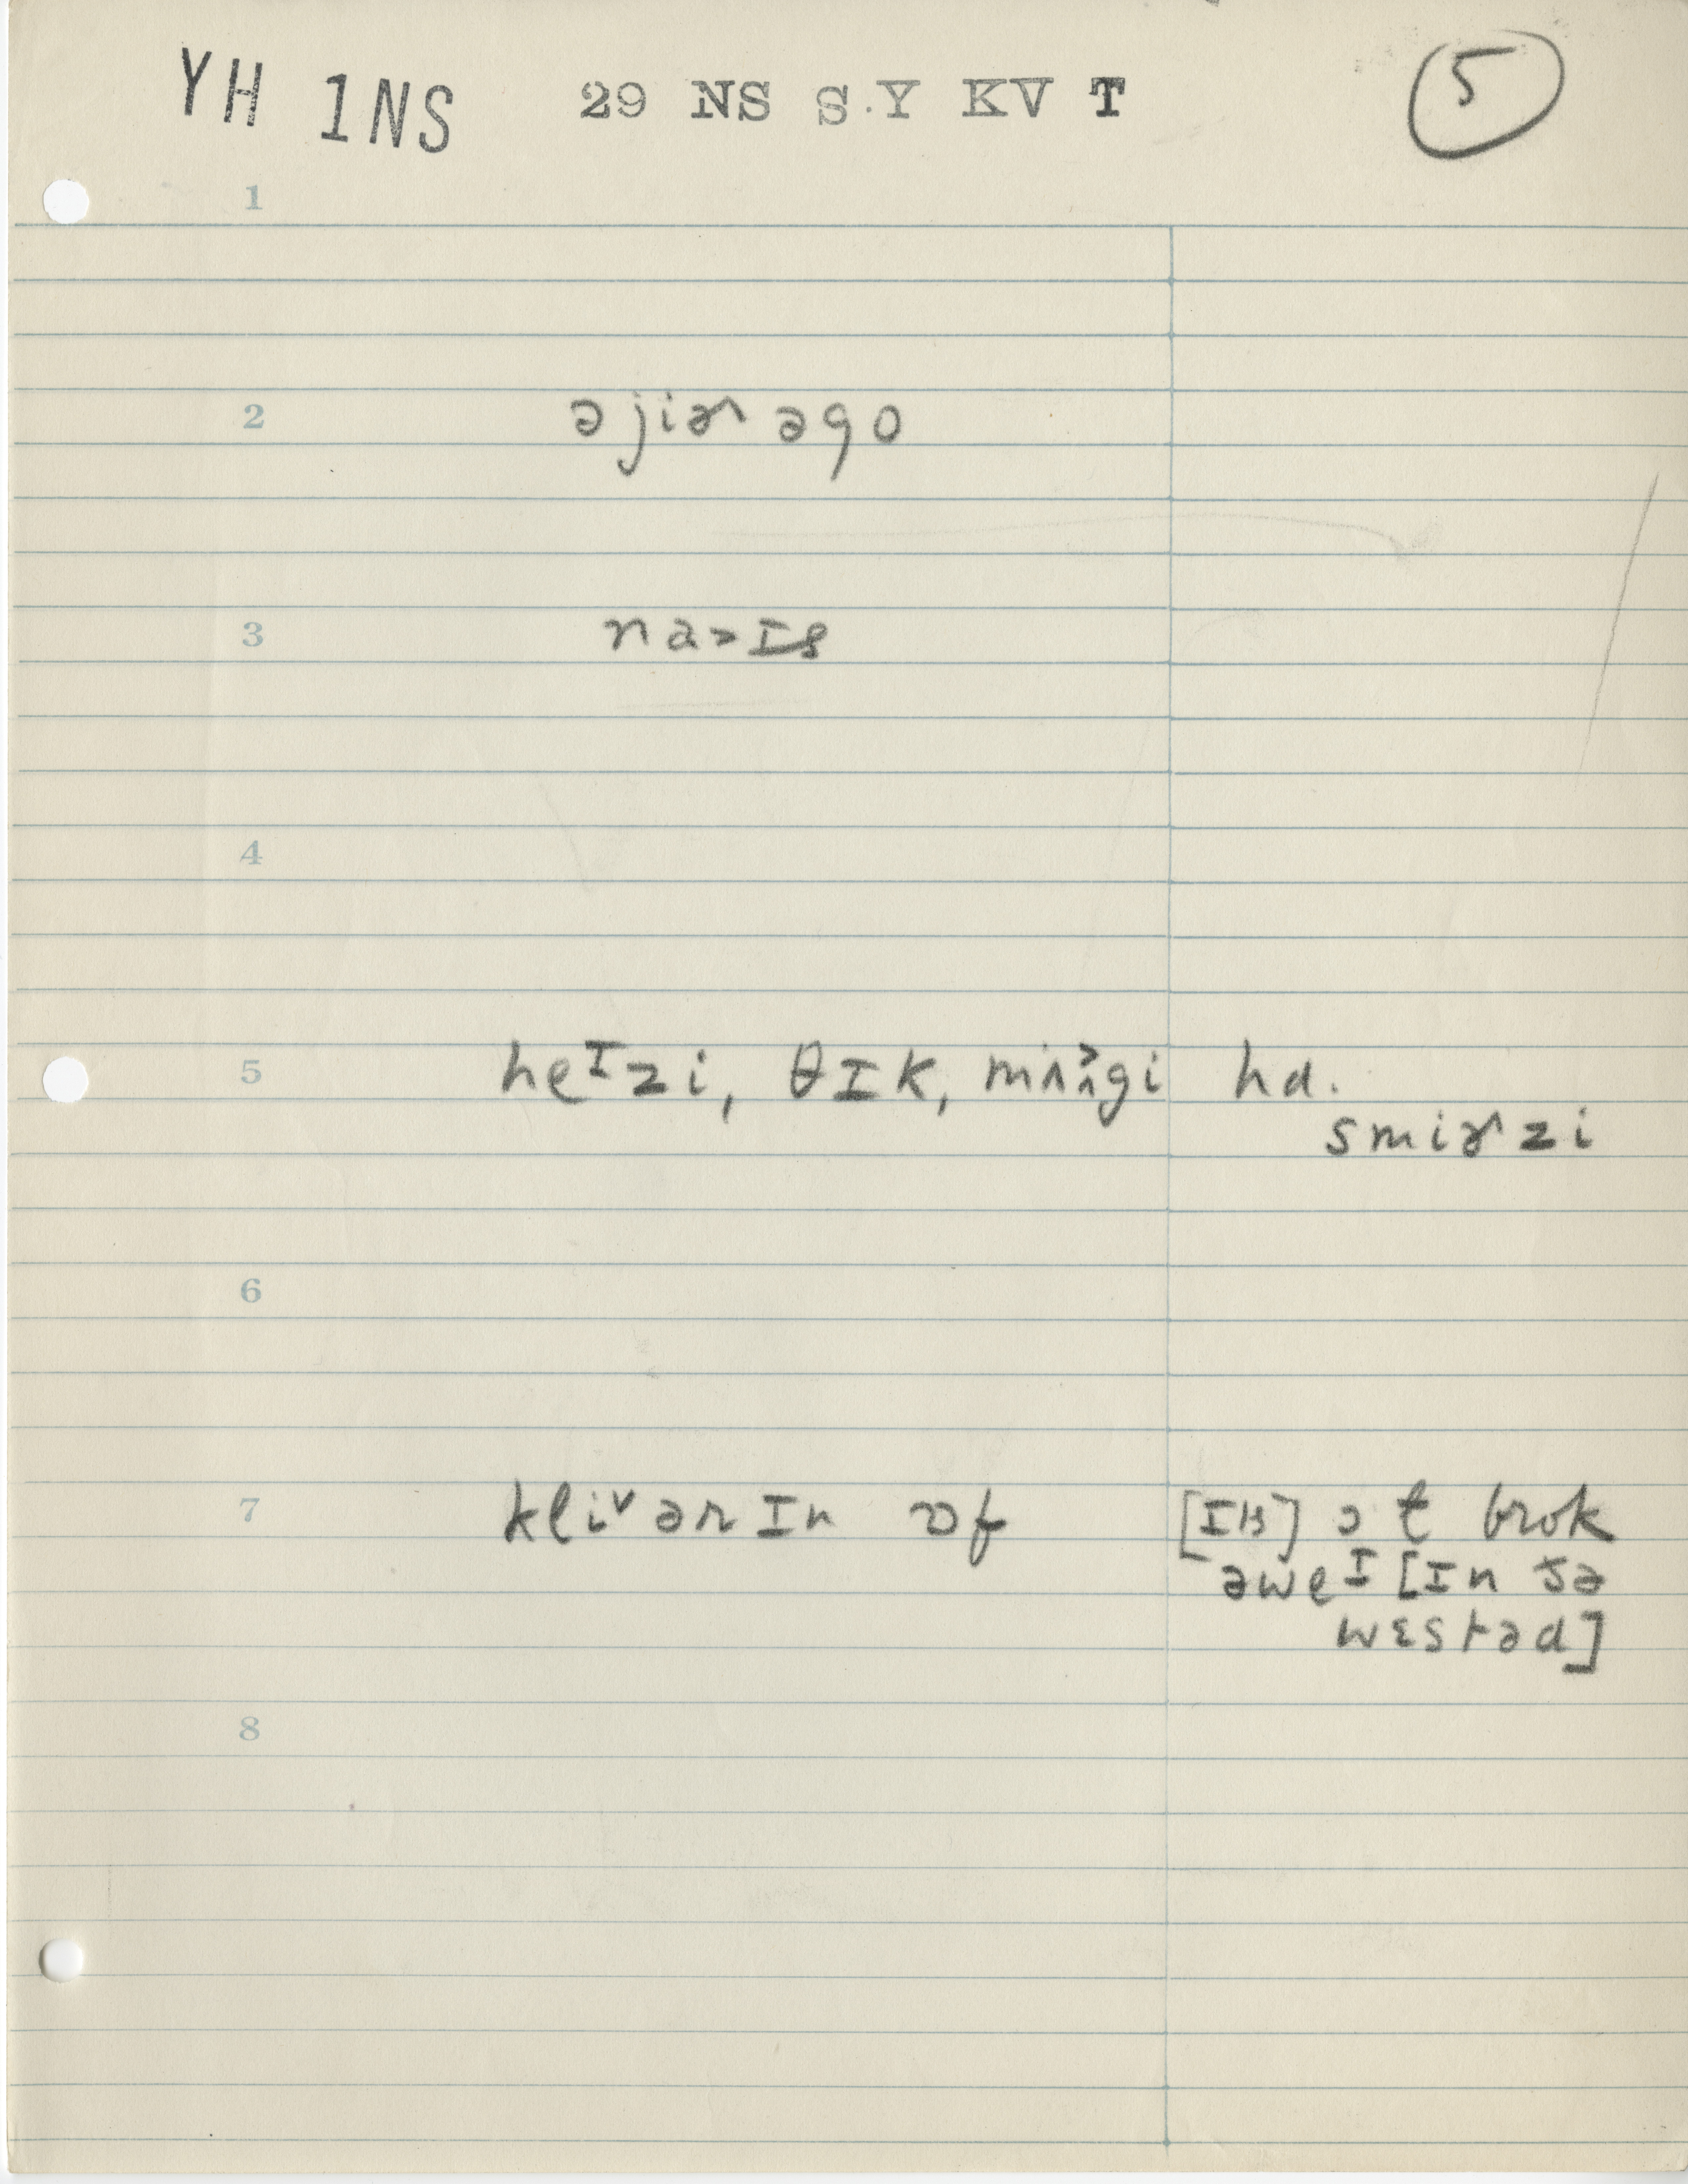 YH 1NS 29 NS S.Y KV T 5
1
2 ə jiɚ əgo
3 na>ɪs
4
5 heᶦzi, θɪk, mʌ^gi hɑ.
smiɚzi
6
7 kli˅ərɪn ɒf [ɪts] ɔt brok
əweᶦ [ɪn ðə
wɛstəd]
8